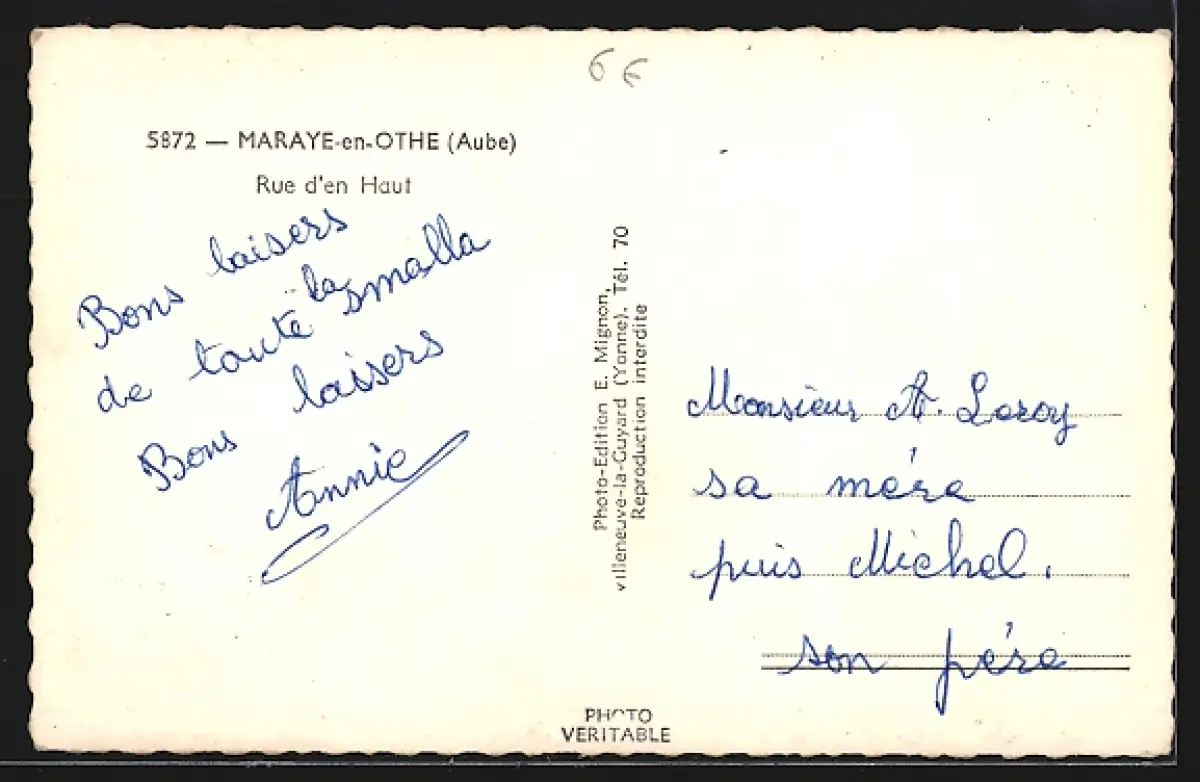 6 €
5872 — MARAYE-en-OTHE (Aube)
Rue d'en Haut
Bons baisers
de toute la smalla
Bons baisers
Annie
Photo-Edition E. Mignon,
villeneuve-la-Guyard (Yonne). Tél. 70
Reproduction interdite
Monsieur A. Leroy
sa mére
puis Michel.
son pére
PHOTO
VERITABLE